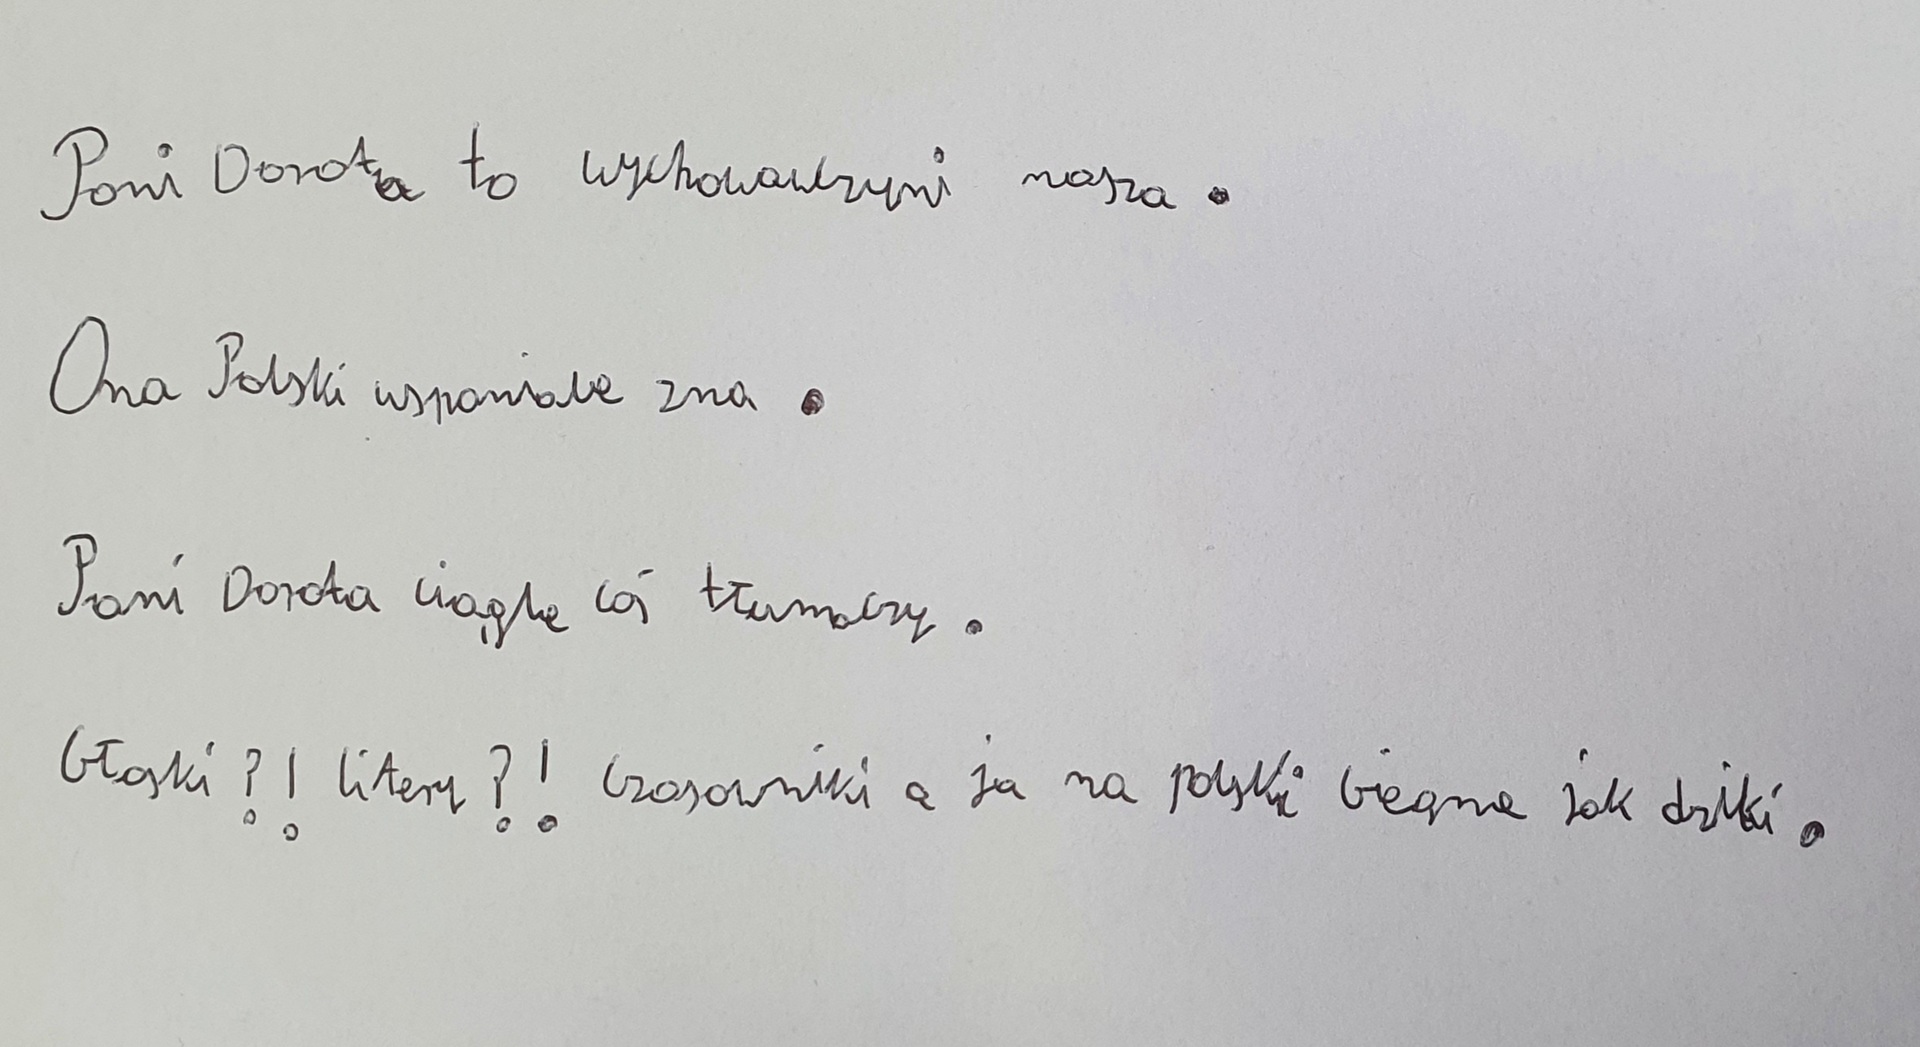 Pani Dorota to wychowawczyni nasza.
Ona Polski wspaniale zna.
Pani Dorota ciągle coś tłumaczy.
Głoski?! litery?! Czasowniki a ja na polski biegne jak dziki.